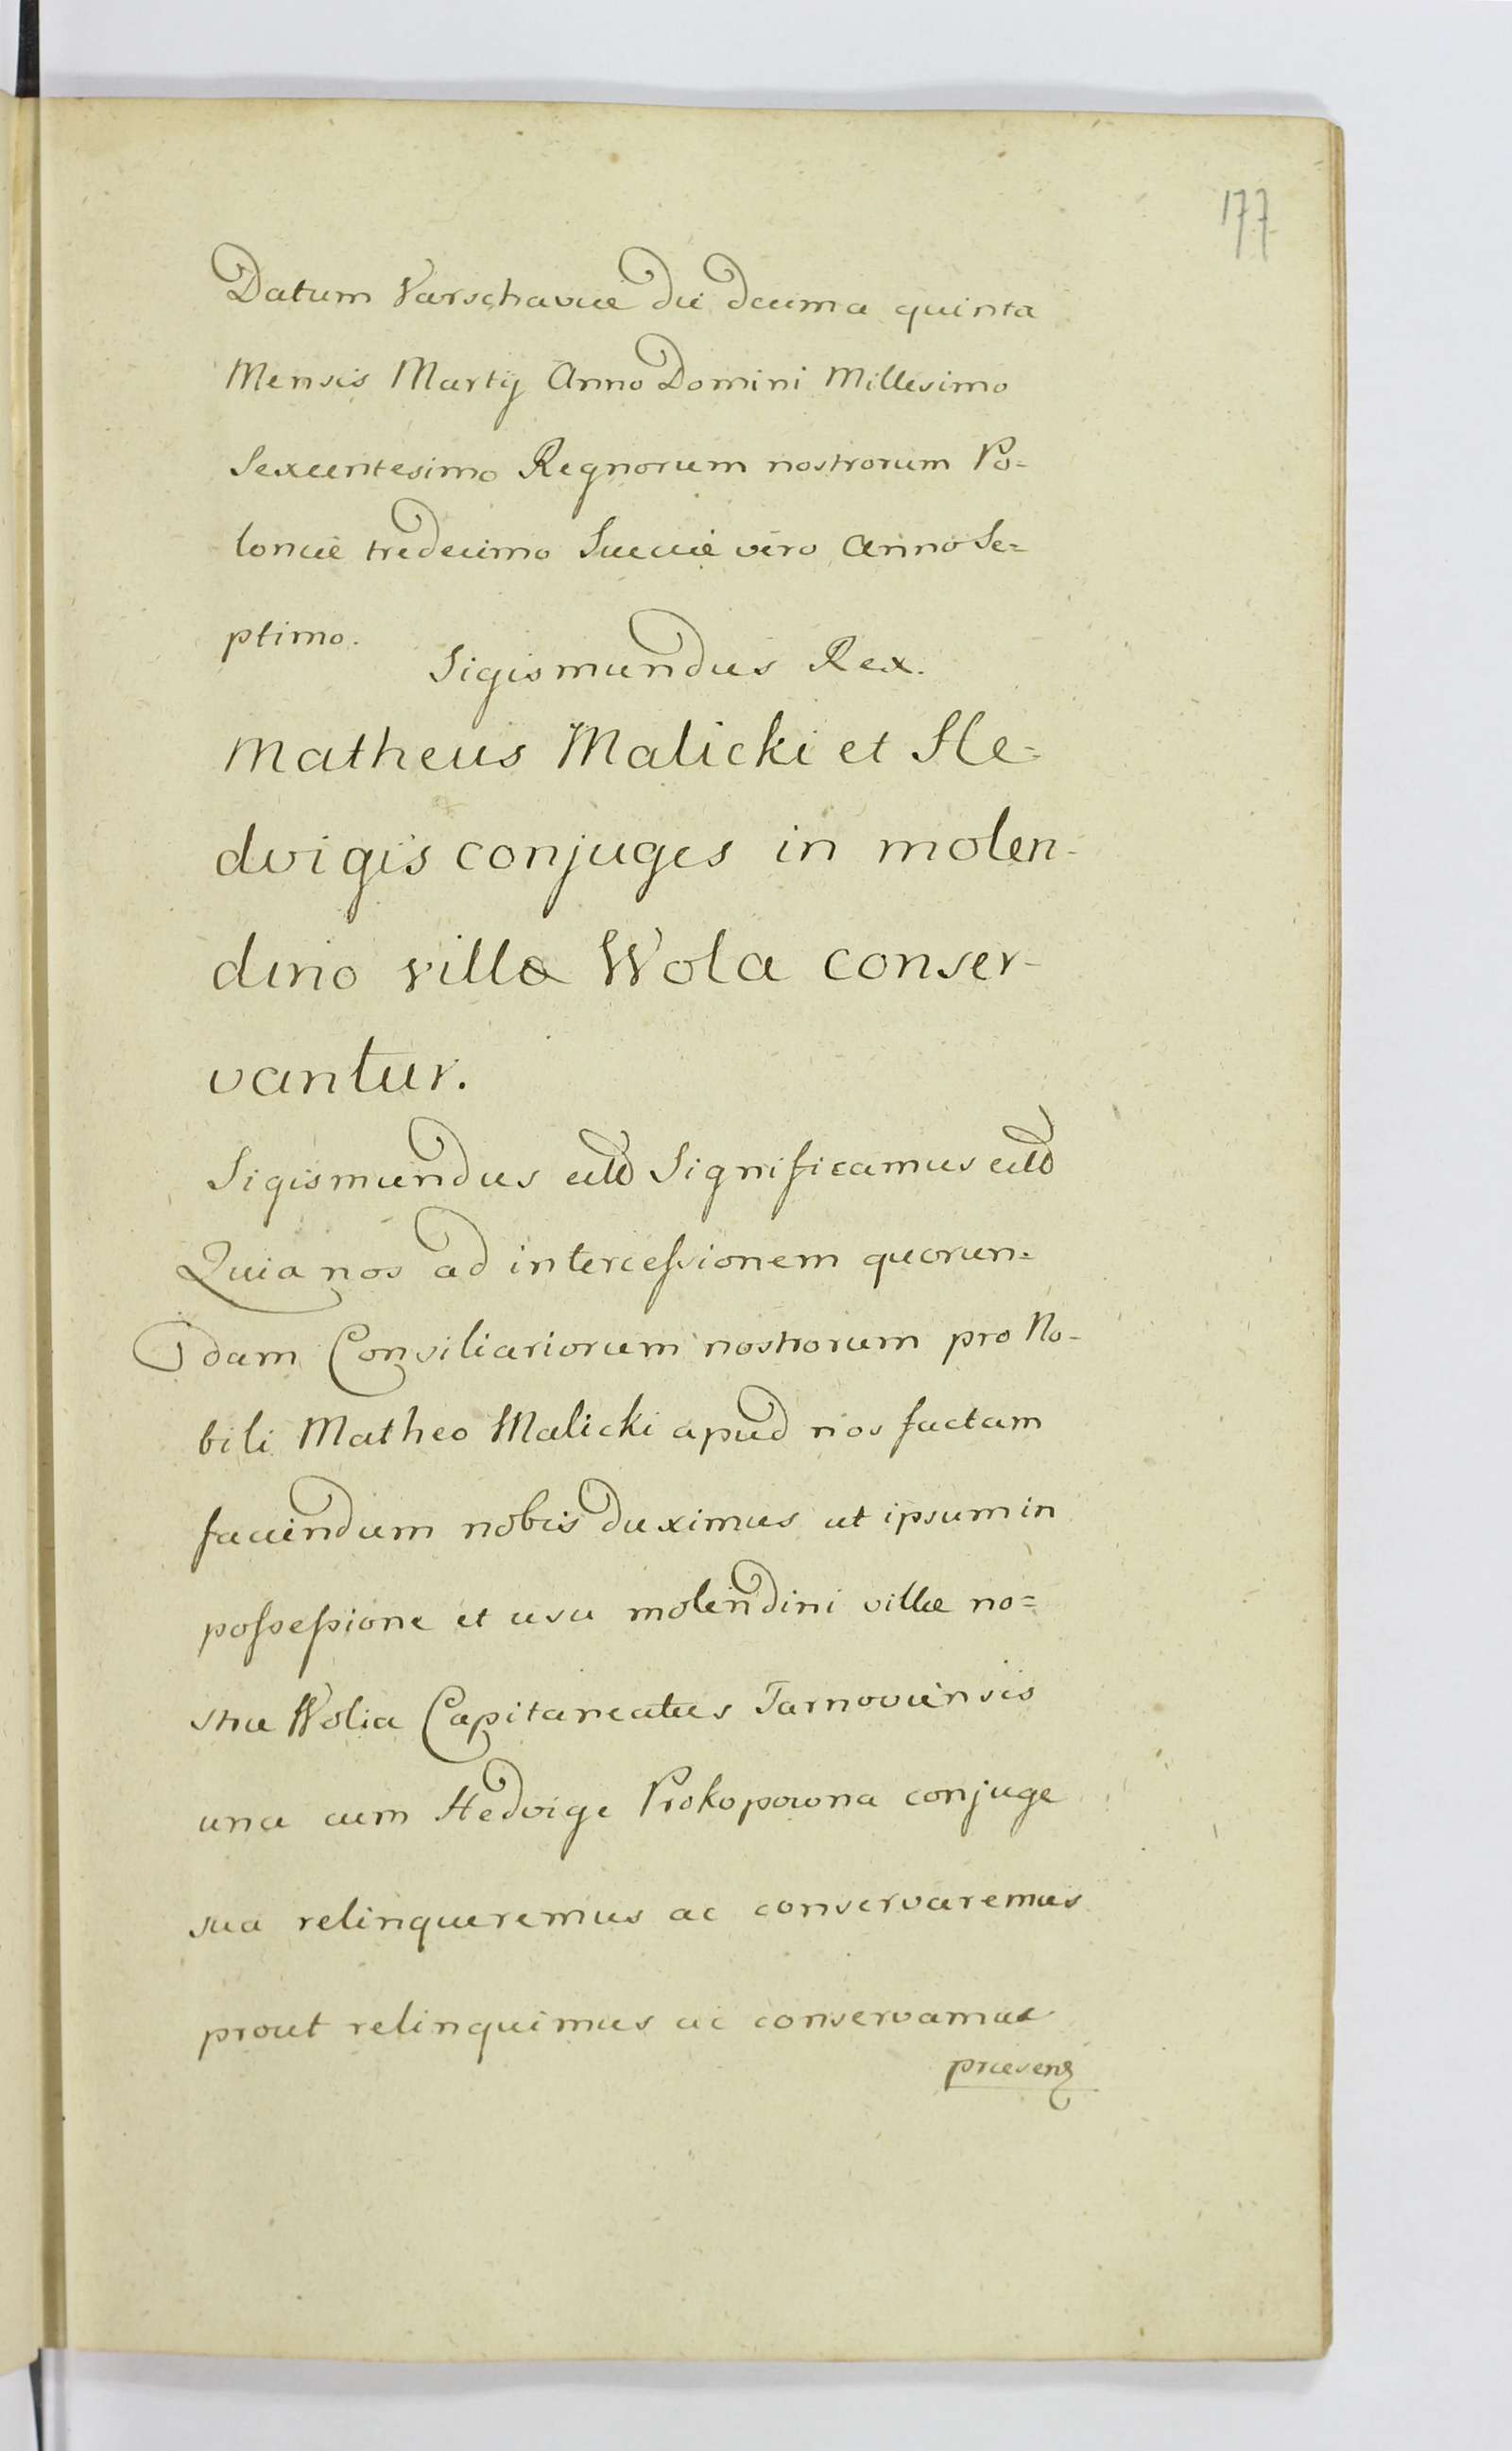 177
Datum Varschaviæ die decima quinta
Mensis Martij Anno Domini Millesimo
Sexcentesimo Regnorum nostrorum Po=
loniæ tredecimo Sueciæ vero Anno Se=
ptimo.
Sigismundus Rex.
Matheus Malicki et He=
dvigis conjuges in molen-
dino villa Wola conser-
vantur.
Sigismundus Significamus
Quia nos ad intercessionem quorun=
dam Consiliariorum nostrorum pro No-
bili Matheo Malicki apud nos factam
faciendum nobis duximus ut ipsum in
possessione et usu molendini villæ no=
stræ Wolia Capitaneatus Tarnoviensis
una cum Hedvige Prokopowna conjuge
sua relinqueremus ac conservaremus
prout relinquimus ac conservamus
præsen